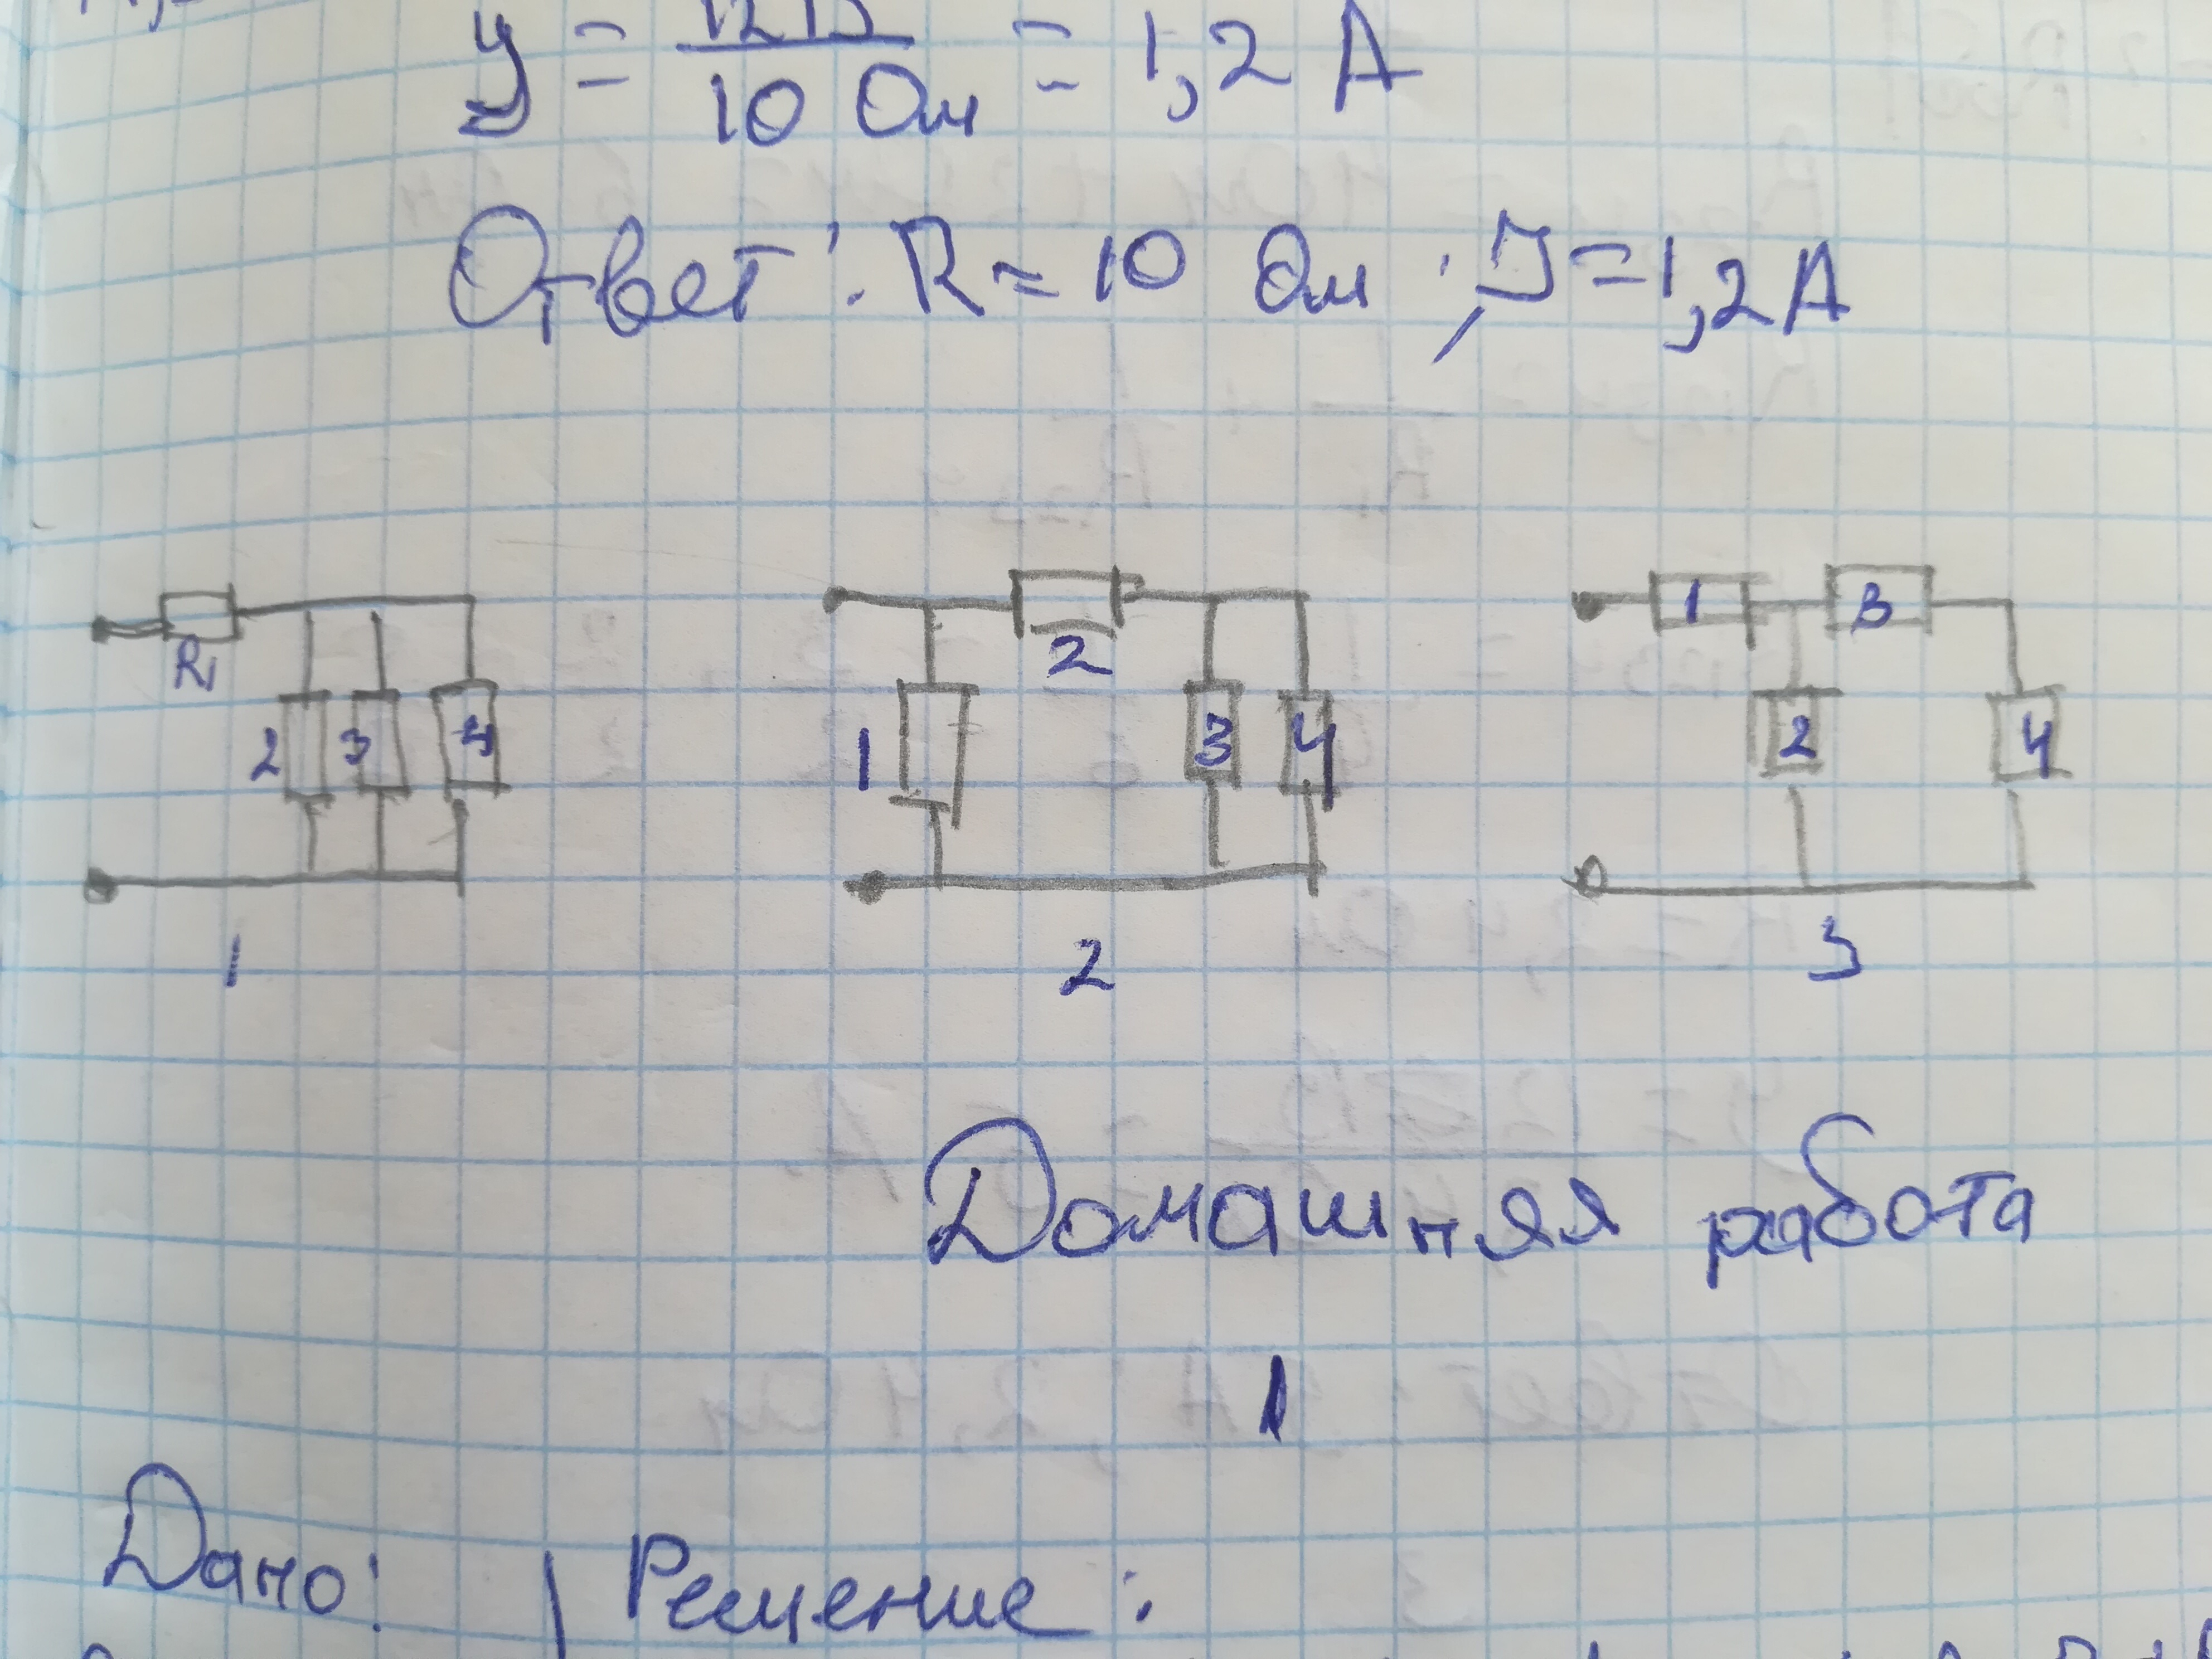 У = 12 В / 10 Ом = 1,2 А
Ответ: R = 10 Ом ; J = 1,2 А
R1
2 3 4
1
1 2 3 4
2
1 3
2 4
3
Домашняя работа
1
Дано: | Решение: